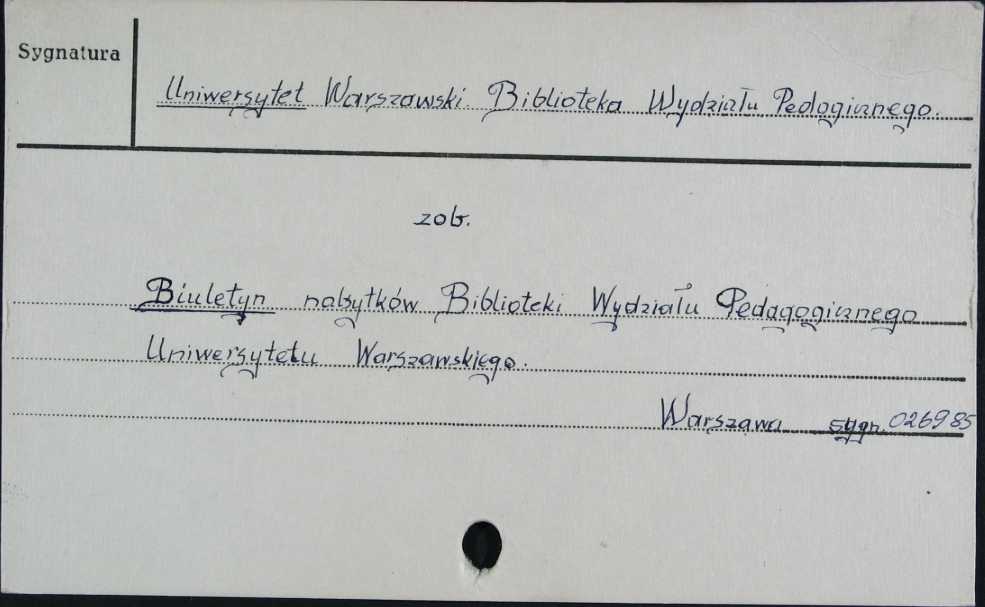 Sygnatura
Uniwersytet Warszawski. Biblioteka Wydziału Pedogicznego.
zob.
Biuletyn nabytków Biblioteki Wydziału Pedagogicznego
Uniwersytetu Warszawskiego.
Warszawa sygn. 026985